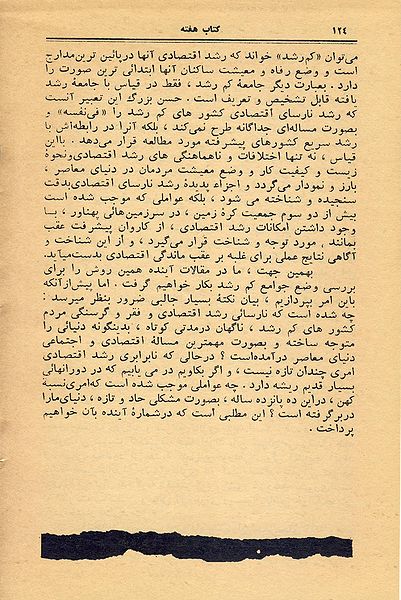 ۱۲۴ کتاب هفته
می‌توان «کم‌رشد» خواند که رشد اقتصادی آنها درپائین ترین‌مدارج
است و وضع رفاه و معیشت ساکنان آنها ابتدائی ترین صورت را
دارد . بعبارت دیگر جامعهٔ کم رشد ، فقط در قیاس با جامعهٔ رشد
یافته قابل تشخیص و تعریف است . حسن بزرگ این تعبیر آنست
که رشد نارسای اقتصادی کشور های کم رشد را «فی‌نفسه» و
بصورت مساله‌ای جداگانه طرح نمی‌کند ، بلکه آنرا در رابطه‌اش با
رشد سریع کشورهای پیشرفته مورد مطالعه قرار می‌دهد . بااین
قیاس ، نه تنها اختلافات و ناهماهنگی های رشد اقتصادی‌ونحوهٔ
زیست و کیفیت کار و وضع معیشت مردمان در دنیای معاصر ،
بارز و نمودار می‌گردد و اجزاء پدیدهٔ رشد نارسای اقتصادی‌بدقت
سنجیده و شناخته می شود ، بلکه عواملی که موجب شده است
بیش از دو سوم جمعیت کرهٔ زمین ، در سرزمین‌هائی پهناور ، بـا
وجود داشتن امکانات رشد اقتصادی ، از کاروان پیشرفت عقب
بمانند . مورد توجه و شناخت قرار می‌گیرد ، و از این شناخت و
آگاهی نتایج عملی برای غلبه بر عقب ماندگی اقتصادی بدست‌میآید.
بهمین جهت ، ما در مقالات آینده همین روش را برای
بررسی وضع جوامع کم رشد بکار خواهیم گرفت . اما پیش‌ازآنکه
باین امر بپردازیم ، بیان نکتهٔ بسیار جالبی ضرور بنظر میرسد :
چه شده است که نارسائی رشد اقتصادی و فقر و گرسنگی مردم
کشور های کم رشد ، ناگهان درمدتی کوتاه ، بدینگونه دنیائی را
متوجه ساخته و بصورت مهمترین مسالهٔ اقتصادی و اجتماعی
دنیای معاصر درآمده‌است ؟ درحالی که نابرابری رشد اقتصادی
امری چندان تازه نیست ، و اگر بکاویم در می یابیم که در دورانهائی
بسیار قدیم ریشه دارد . چه عواملی موجب شده است که‌امری‌نسبة
کهن ، دراین ده پانزده ساله ، بصورت مشکلی حاد و تازه ، دنیای‌مارا
دربرگرفته است ؟ این مطلبی است که درشمارهٔ آینده بآن خواهیم
پرداخت .